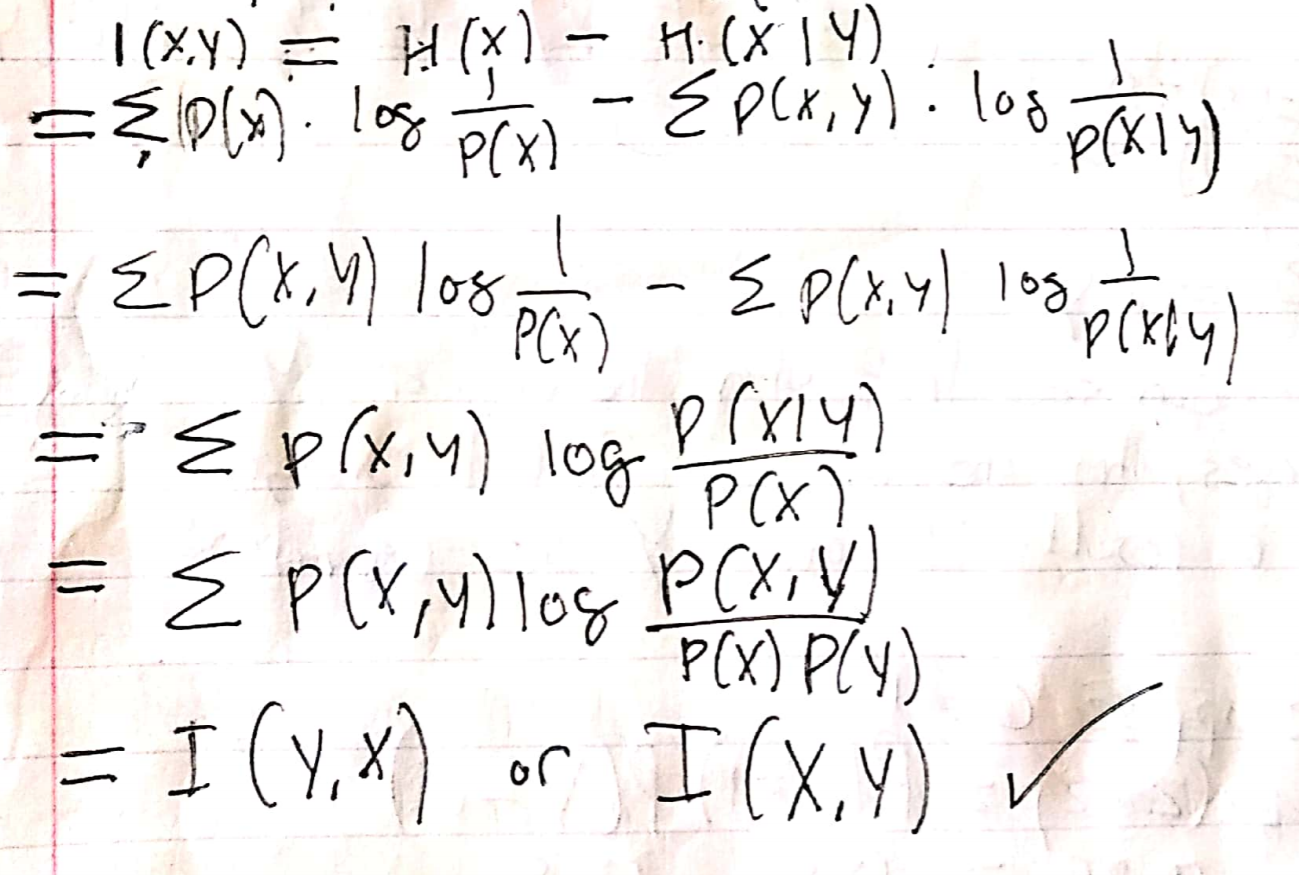 I(X,Y) = H(X) - H(X|Y)
= Σ P(x) · log 1/P(X) - Σ P(x,y) · log 1/P(X|Y)
= Σ P(X,Y) log 1/P(X) - Σ P(x,y) log 1/P(X|Y)
= Σ P(X,Y) log P(X|Y)/P(X)
= Σ P(X,Y) log P(X,Y)/P(X) P(Y)
= I(Y,X) or I(X,Y) ✓